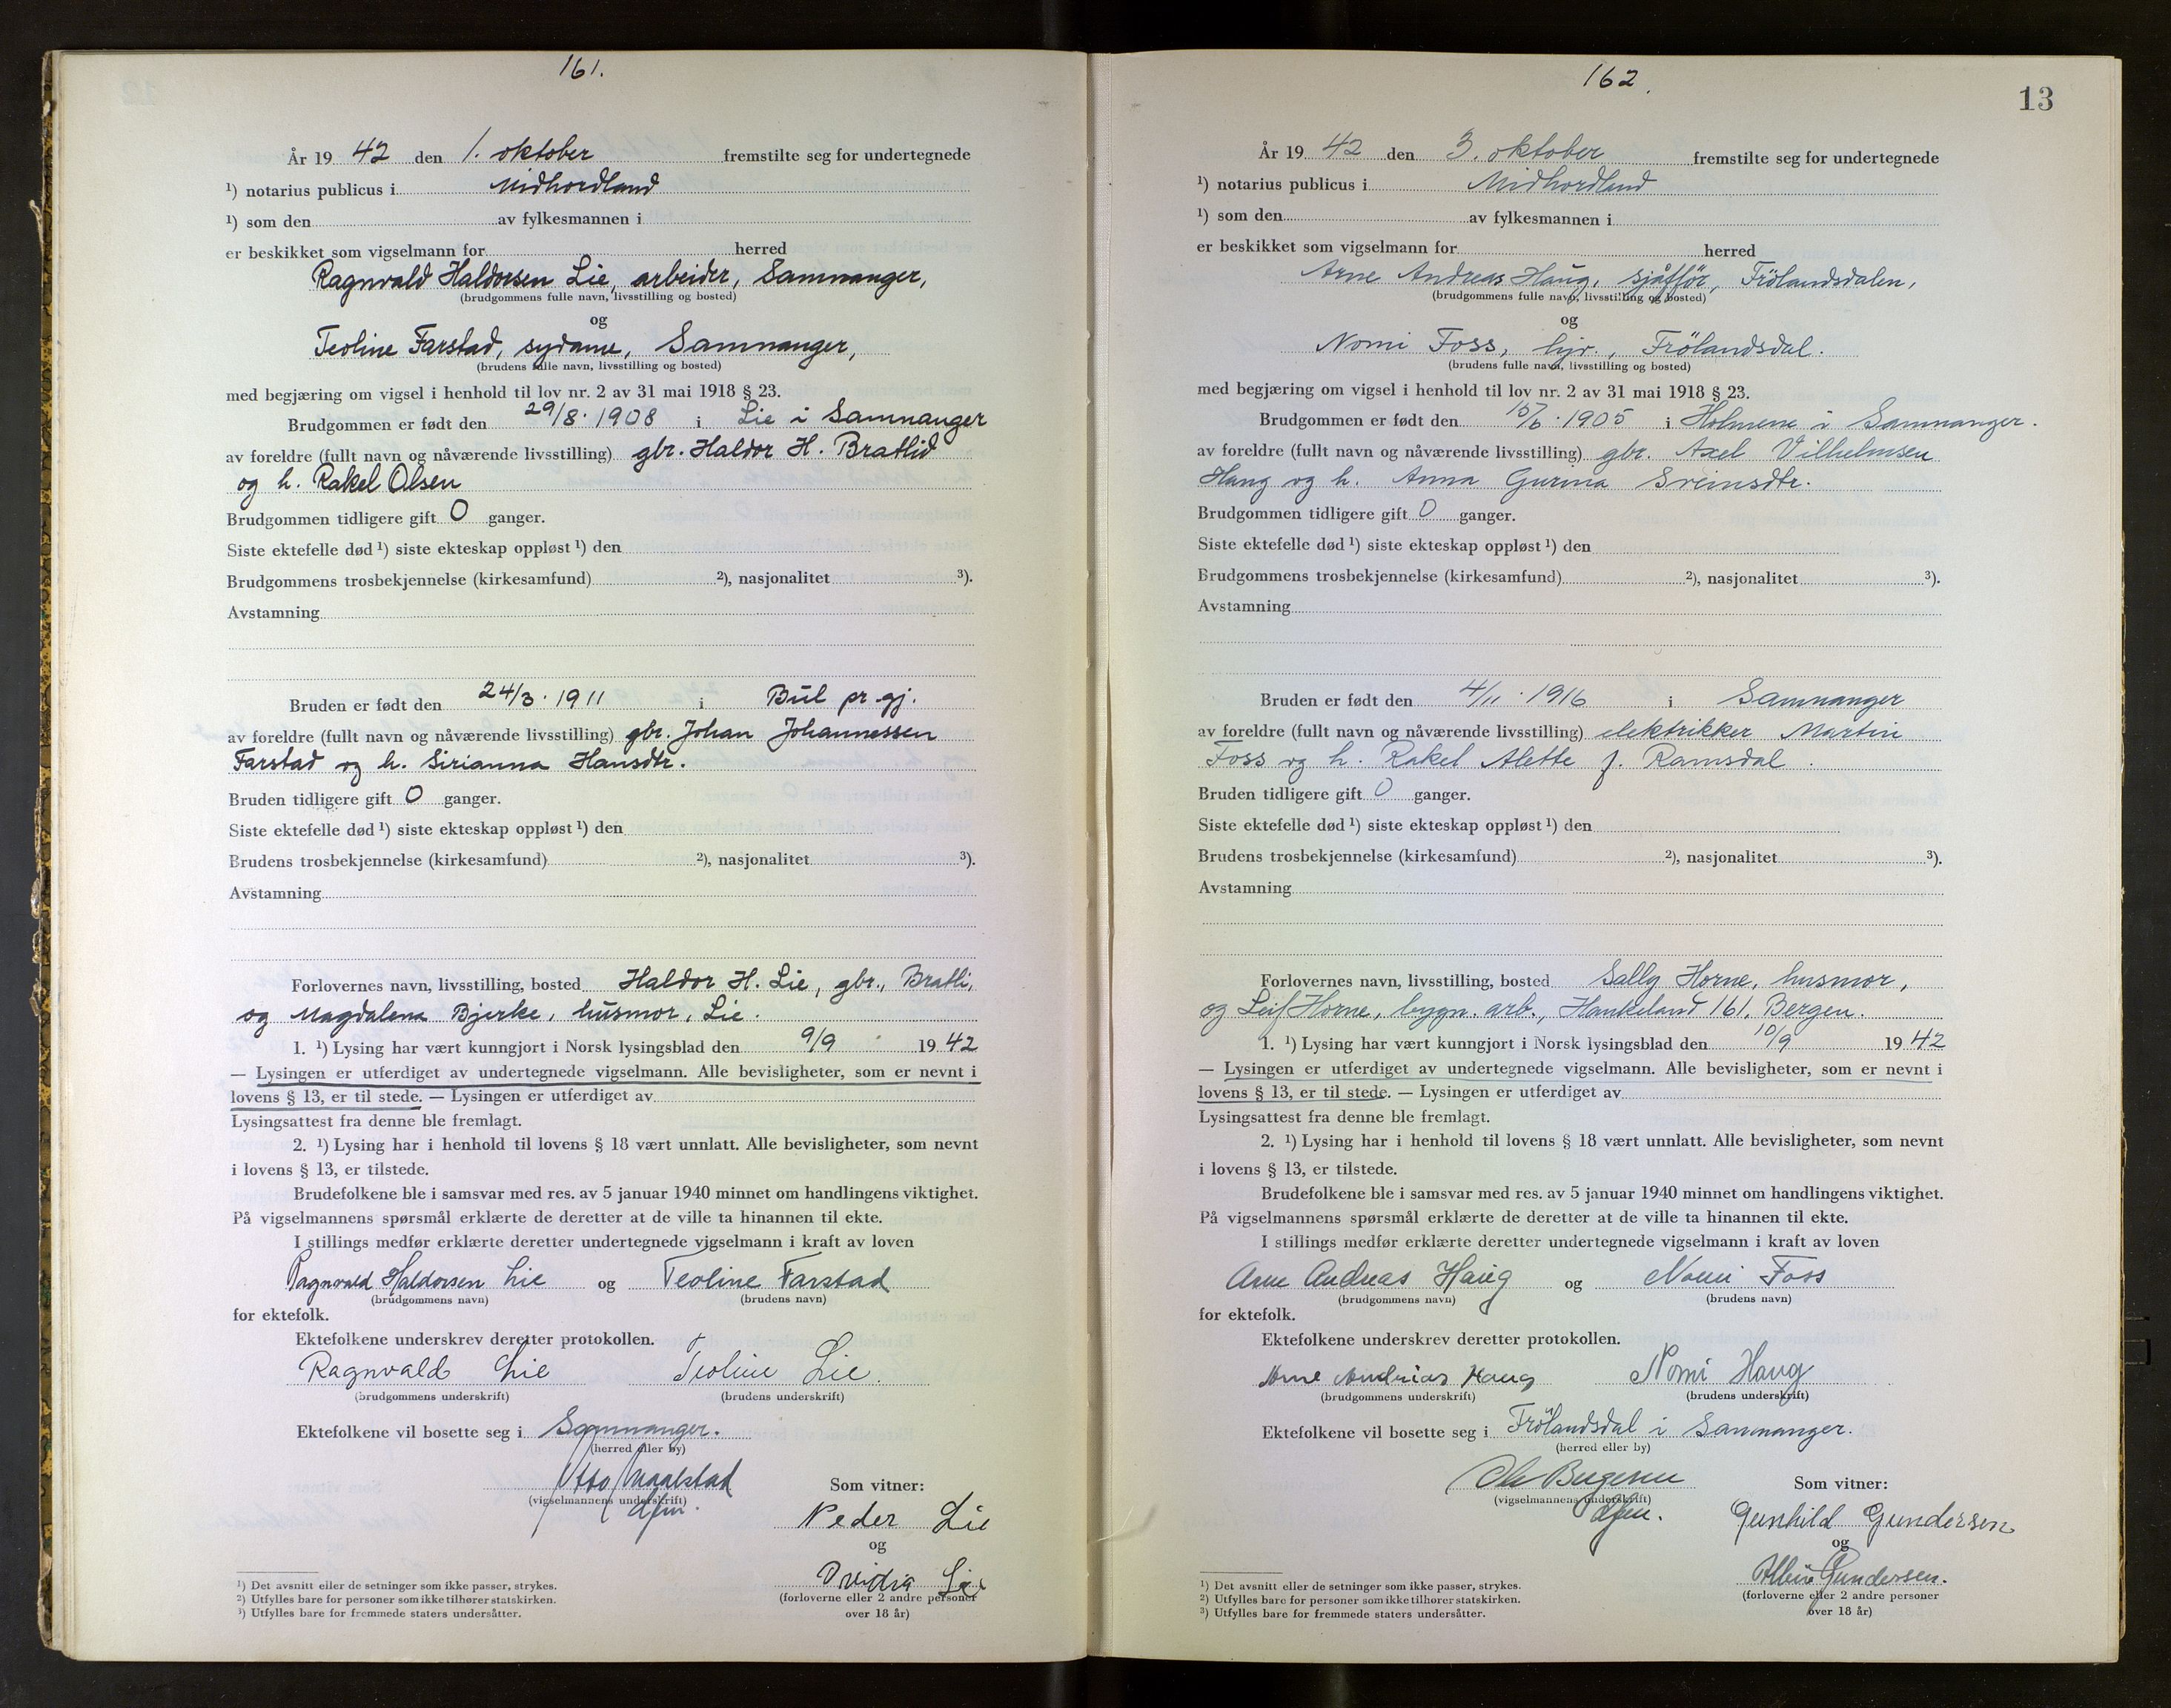 161.
År 1942 den 1. oktober fremstilte seg for undertegnede
¹) notarius publicus i Midhordland
¹) som den av fylkesmannen i
er beskikket som vigselmann for herred
Ragnvald Haldorsen Lie, arbeider, Samnanger,
(brudgommens fulle navn, livsstilling og bosted)
og
Teoline Farstad, sydame, Samnanger,
(brudens fulle navn, livsstilling og bosted)
med begjæring om vigsel i henhold til lov nr. 2 av 31 mai 1918 § 23.
Brudgommen er født den 29/8. 1908 i Lie i Samnanger
av foreldre (fullt navn og nåværende livsstilling) gbr. Haldor H. Bratlid
og h. Rakel Olsen
Brudgommen tidligere gift 0 ganger.
Siste ektefelle død ¹) siste ekteskap oppløst ¹) den
Brudgommens trosbekjennelse (kirkesamfund) ²), nasjonalitet ³).
Avstamning
Bruden er født den 24/3. 1911 i Bud pr gj.
av foreldre (fullt navn og nåværende livsstilling) gbr. Johan Johannessen
Farstad og h. Sirianna Hansdtr.
Bruden tidligere gift 0 ganger.
Siste ektefelle død ¹) siste ekteskap oppløst ¹) den
Brudens trosbekjennelse (kirkesamfund) ²), nasjonalitet ³).
Avstamning
Forlovernes navn, livsstilling, bosted Haldor H. Lie, gbr., Bratli,
og Magdalena Bjerke, husmor, Lie.
1. ¹) Lysing har vært kunngjort i Norsk lysingsblad den 9/9 1942
— Lysingen er utferdiget av undertegnede vigselmann. Alle bevisligheter, som er nevnt i
lovens § 13, er til stede. — Lysingen er utferdiget av
Lysingsattest fra denne ble fremlagt.
2. ¹) Lysing har i henhold til lovens § 18 vært unnlatt. Alle bevisligheter, som nevnt
i lovens § 13, er tilstede.
Brudefolkene ble i samsvar med res. av 5 januar 1940 minnet om handlingens viktighet.
På vigselmannens spørsmål erklærte de deretter at de ville ta hinannen til ekte.
I stillings medfør erklærte deretter undertegnede vigselmann i kraft av loven
Ragnvald Haldorsen Lie og Teoline Farstad
(brudgommens navn) (brudens navn)
for ektefolk.
Ektefolkene underskrev deretter protokollen.
Ragnvald Lie Teoline Lie.
(brudgommens underskrift) (brudens underskrift)
Ektefolkene vil bosette seg i Samnanger.
(herred eller by)
Otto
(vigselmannens underskrift)
dfm.
Som vitner:
Peder Lie
og
Lie
(forloverne eller 2 andre personer
over 18 år)
¹) Det avsnitt eller de setninger som ikke passer, strykes.
²) Utfylles bare for personer som ikke tilhører statskirken.
³) Utfylles bare for fremmede staters undersåtter.
162.
13
År 1942 den 3. oktober fremstilte seg for undertegnede
¹) notarius publicus i Midhordland
¹) som den av fylkesmannen i
er beskikket som vigselmann for herred
Arne Andreas Haug, sjåfför, Frölandsdalen,
(brudgommens fulle navn, livsstilling og bosted)
og
Nomi Foss, hjv., Frölandsdal.
(brudens fulle navn, livsstilling og bosted)
med begjæring om vigsel i henhold til lov nr. 2 av 31 mai 1918 § 23.
Brudgommen er født den 15/6. 1905 i Holmene i Samnanger.
av foreldre (fullt navn og nåværende livsstilling) gbr. Axel Vilhelmsen
Haug og h. Anna Gurina Sveinsdtr.
Brudgommen tidligere gift 0 ganger.
Siste ektefelle død ¹) siste ekteskap oppløst ¹) den
Brudgommens trosbekjennelse (kirkesamfund) ²), nasjonalitet ³).
Avstamning
Bruden er født den 4/11. 1916 i Samnanger
av foreldre (fullt navn og nåværende livsstilling) elektrikker Martin
Foss og h. Rakel Alette f. Ramsdal.
Bruden tidligere gift 0 ganger.
Siste ektefelle død ¹) siste ekteskap oppløst ¹) den
Brudens trosbekjennelse (kirkesamfund) ²), nasjonalitet ³).
Avstamning
Forlovernes navn, livsstilling, bosted Sally Horne, husmor,
og Leif Horne, bygn. arb., Haukeland 161, Bergen.
1. ¹) Lysing har vært kunngjort i Norsk lysingsblad den 10/9 1942
— Lysingen er utferdiget av undertegnede vigselmann. Alle bevisligheter, som er nevnt i
lovens § 13, er til stede. — Lysingen er utferdiget av
Lysingsattest fra denne ble fremlagt.
2. ¹) Lysing har i henhold til lovens § 18 vært unnlatt. Alle bevisligheter, som nevnt
i lovens § 13, er tilstede.
Brudefolkene ble i samsvar med res. av 5 januar 1940 minnet om handlingens viktighet.
På vigselmannens spørsmål erklærte de deretter at de ville ta hinannen til ekte.
I stillings medfør erklærte deretter undertegnede vigselmann i kraft av loven
Arne Andreas Haug og Nomi Foss
(brudgommens navn) (brudens navn)
for ektefolk.
Ektefolkene underskrev deretter protokollen.
Arne Andreas Haug Nomi Haug
(brudgommens underskrift) (brudens underskrift)
Ektefolkene vil bosette seg i Frölandsdal i Samnanger.
(herred eller by)
Ole Bergesen
(vigselmannens underskrift)
dfm.
Som vitner:
Gunhild Gundersen
og
Gundersen.
(forloverne eller 2 andre personer
over 18 år)
¹) Det avsnitt eller de setninger som ikke passer, strykes.
²) Utfylles bare for personer som ikke tilhører statskirken.
³) Utfylles bare for fremmede staters undersåtter.